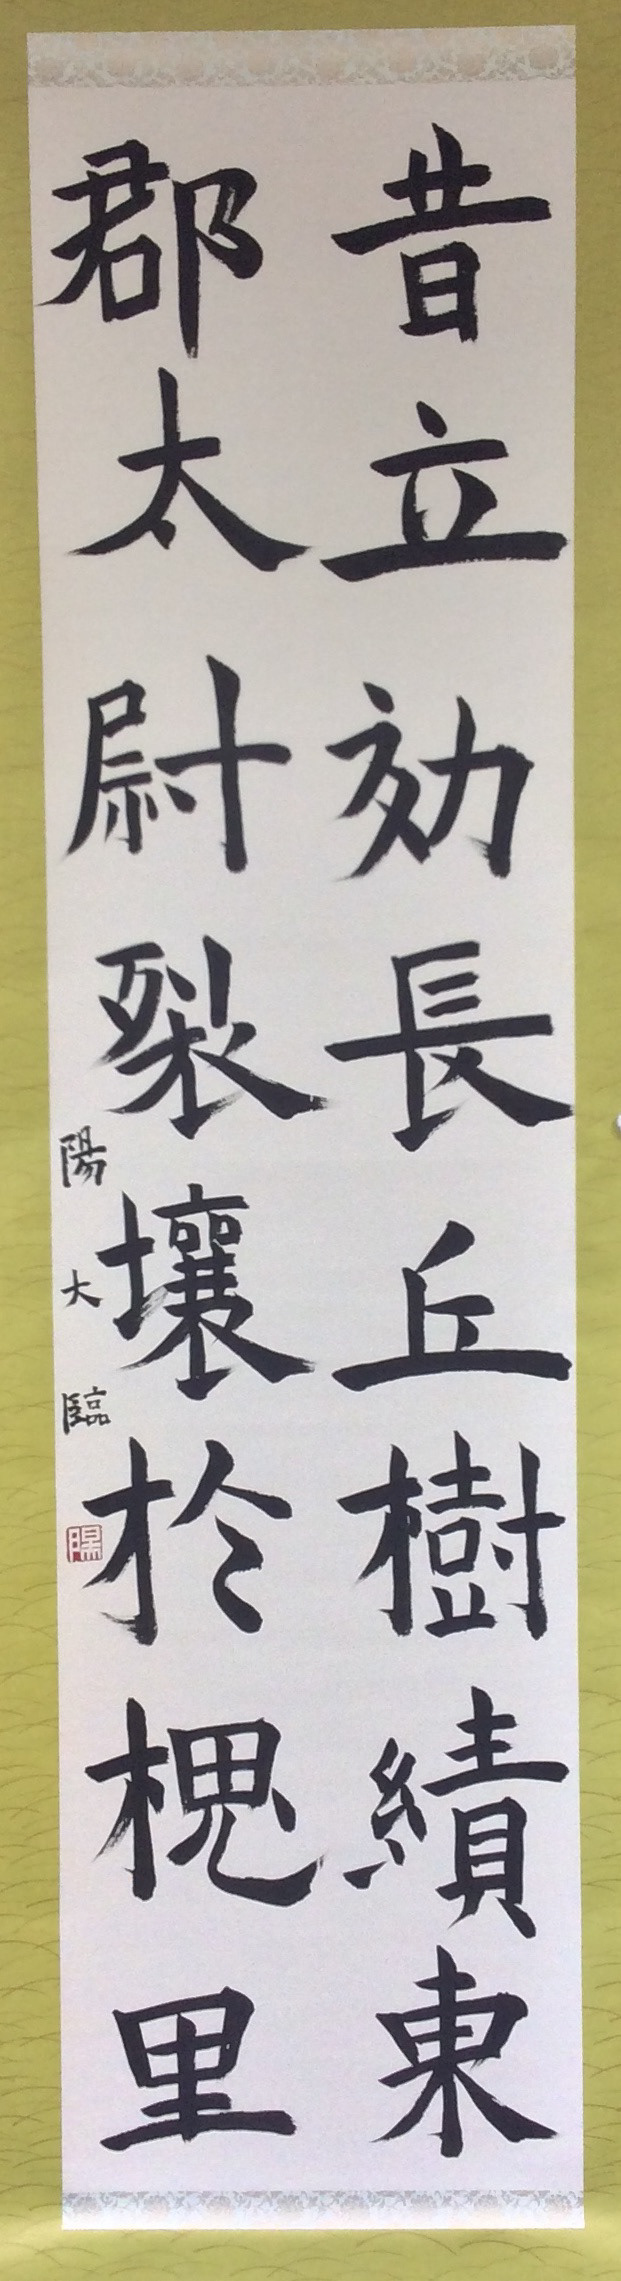 昔立効長丘樹績東
郡太尉裂壤於槐里
陽大臨
陽